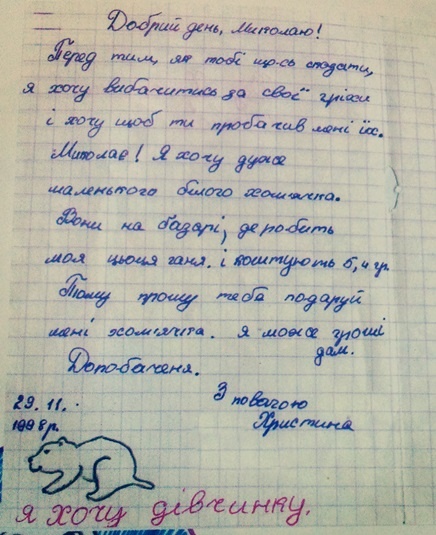 Добрий день, Миколаю!
Перед тим, як тобі що-сь сказати,
я хочу вибачитись за свої гріхи
і хочу щоб ти пробачив мені їх.
Миколає! Я хочу дуже
маленького білого хом'ячка.
Вони на базарі, де робить
моя цьоця Ганя. і коштують 5, 4 гр.
Тому прошу тебе подаруй
мені хом'ячка. я може гроші
дам.
Допобаченя.
29. 11.
З повагою
1998 р.
Христина
я хочу дівчинку.